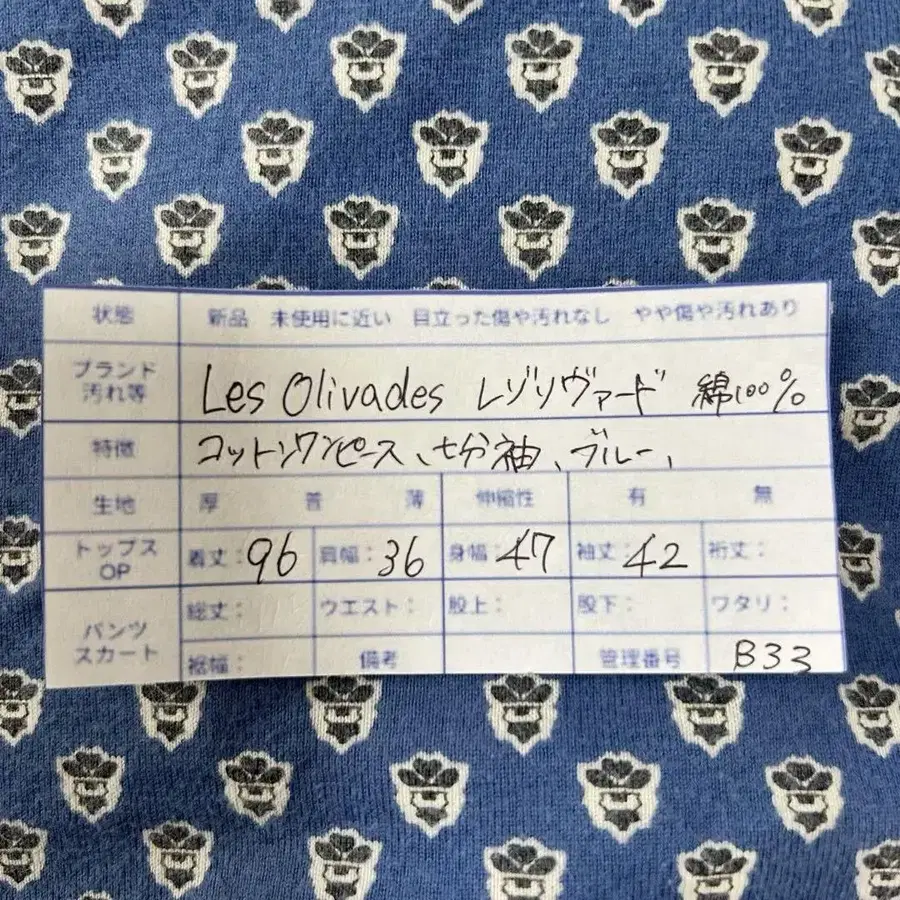 状態 新品 未使用に近い 目立った傷や汚れなし やや傷や汚れあり
ブランド
汚れ等 Les Olivades レゾリヴァード 綿100%
特徴 コットンワンピース、七分袖、ブルー、
生地 厚 普 薄 伸縮性 有 無
トップス
OP 着丈:96 肩幅:36 身幅:47 袖丈:42 裄丈:
パンツ
スカート 総丈: ウエスト: 股上: 股下: ワタリ:
裾幅: 備考 管理番号 B33